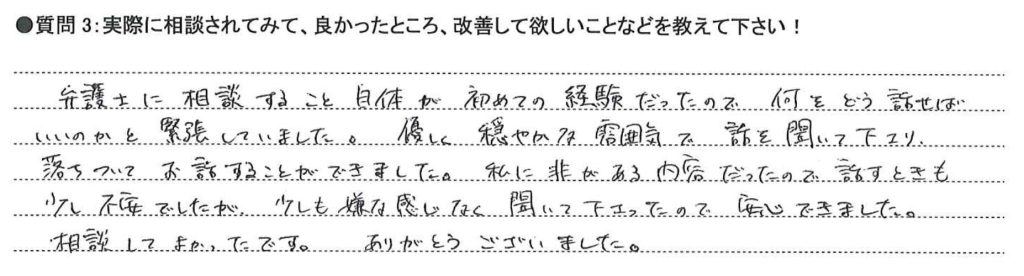 ●質問 3:実際に相談されてみて、良かったところ、改善して欲しいことなどを教えて下さい!
弁護士に 相談 すること 自体が 初めての 経験だったので 何を どう 話せば
いいのかと 緊張していました。 優しく 穏やかな 雰囲気で 話を 聞いて下さり、
落ちついて お話することができました。 私に 非がある 内容だったので 話すときも
少し 不安でしたが、少しも 嫌な感じなく 聞いて下さったので 安心できました。
相談してよかったです。 ありがとうございました。